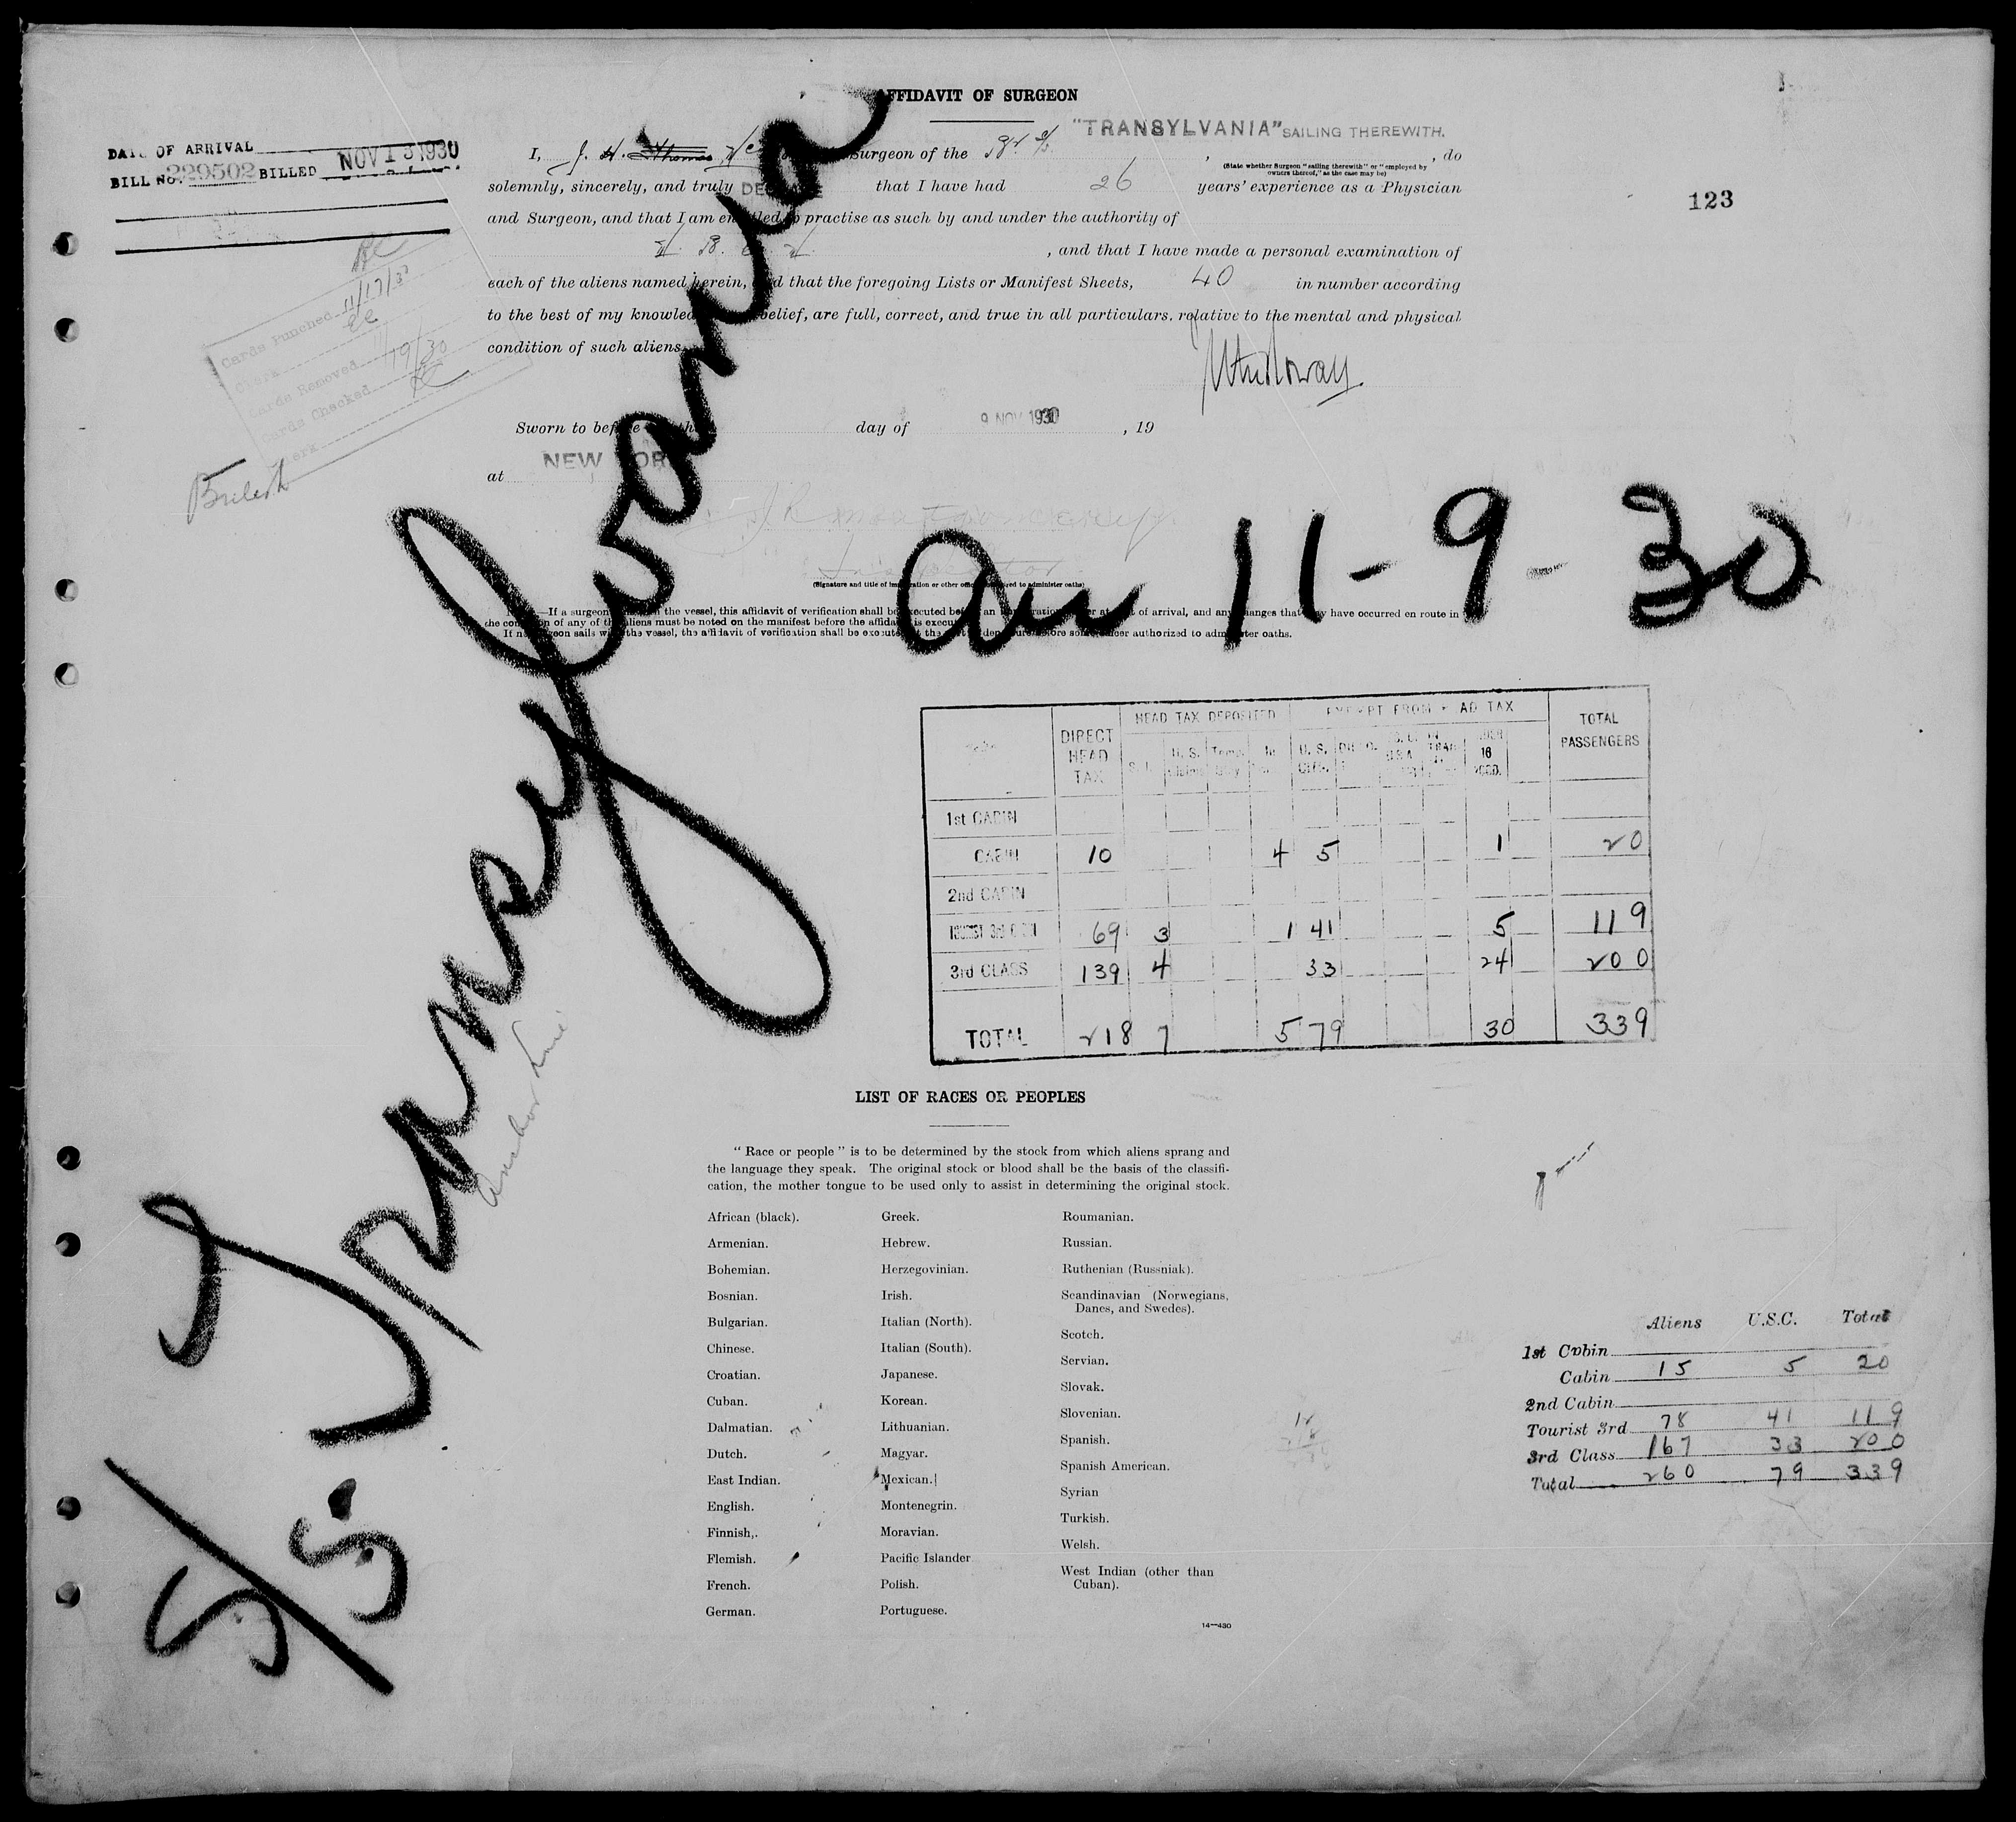 AFFIDAVIT OF SURGEON
DATE OF ARRIVAL
BILL No. 229502 BILLED NOV 13 1930
123
"TRANSYLVANIA" SAILING THEREWITH.
I, J. H. Thomas Surgeon of the Br S/S , , do
(State whether Surgeon "sailing therewith" or "employed by
owners thereof," as the case may be)
solemnly, sincerely, and truly that I have had 26 years' experience as a Physician
and Surgeon, and that I am entitled to practise as such by and under the authority of
, and that I have made a personal examination of
each of the aliens named herein, and that the foregoing Lists or Manifest Sheets, 40 in number according
to the best of my knowledge belief, are full, correct, and true in all particulars, relative to the mental and physical
condition of such aliens
Cards Punched 11/17/30
Clerk
Cards Removed 11/19/30
Cards Checked
Clerk
British
Sworn to before day of 9 NOV 1930 , 19
at NEW YORK
Inspector
(Signature and title of immigration or other officer required to administer oaths)
—If a surgeon the vessel, this affidavit of verification shall be executed before an immigration officer at of arrival, and any changes that may have occurred en route in
the condition of any of the aliens must be noted on the manifest before the affidavit is executed
If no surgeon sails with the vessel, the affidavit of verification shall be executed at the port of departure before some officer authorized to administer oaths.
S/S Transylvania
Arr 11-9-30
Anchor Line
DIRECT HEAD TAX HEAD TAX DEPOSITED EXEMPT FROM HEAD TAX TOTAL PASSENGERS
1st CABIN
CABIN 10 4 5 1 20
2nd CABIN
TOURIST 3rd CABIN 69 3 1 41 5 119
3rd CLASS 139 4 33 24 200
TOTAL 218 7 5 79 30 339
LIST OF RACES OR PEOPLES
"Race or people" is to be determined by the stock from which aliens sprang and
the language they speak. The original stock or blood shall be the basis of the classifi-
cation, the mother tongue to be used only to assist in determining the original stock.
African (black).
Armenian.
Bohemian.
Bosnian.
Bulgarian.
Chinese.
Croatian.
Cuban.
Dalmatian.
Dutch.
East Indian.
English.
Finnish,.
Flemish.
French.
German.
Greek.
Hebrew.
Herzegovinian.
Irish.
Italian (North).
Italian (South).
Japanese.
Korean.
Lithuanian.
Magyar.
Mexican.
Montenegrin.
Moravian.
Pacific Islander
Polish.
Portuguese.
Roumanian.
Russian.
Ruthenian (Russniak).
Scandinavian (Norwegians,
Danes, and Swedes).
Scotch.
Servian.
Slovak.
Slovenian.
Spanish.
Spanish American.
Syrian
Turkish.
Welsh.
West Indian (other than
Cuban).
14—430
Aliens U.S.C. Total
1st Cabin
Cabin 15 5 20
2nd Cabin
Tourist 3rd 78 41 119
3rd Class 167 33 200
Total 260 79 339